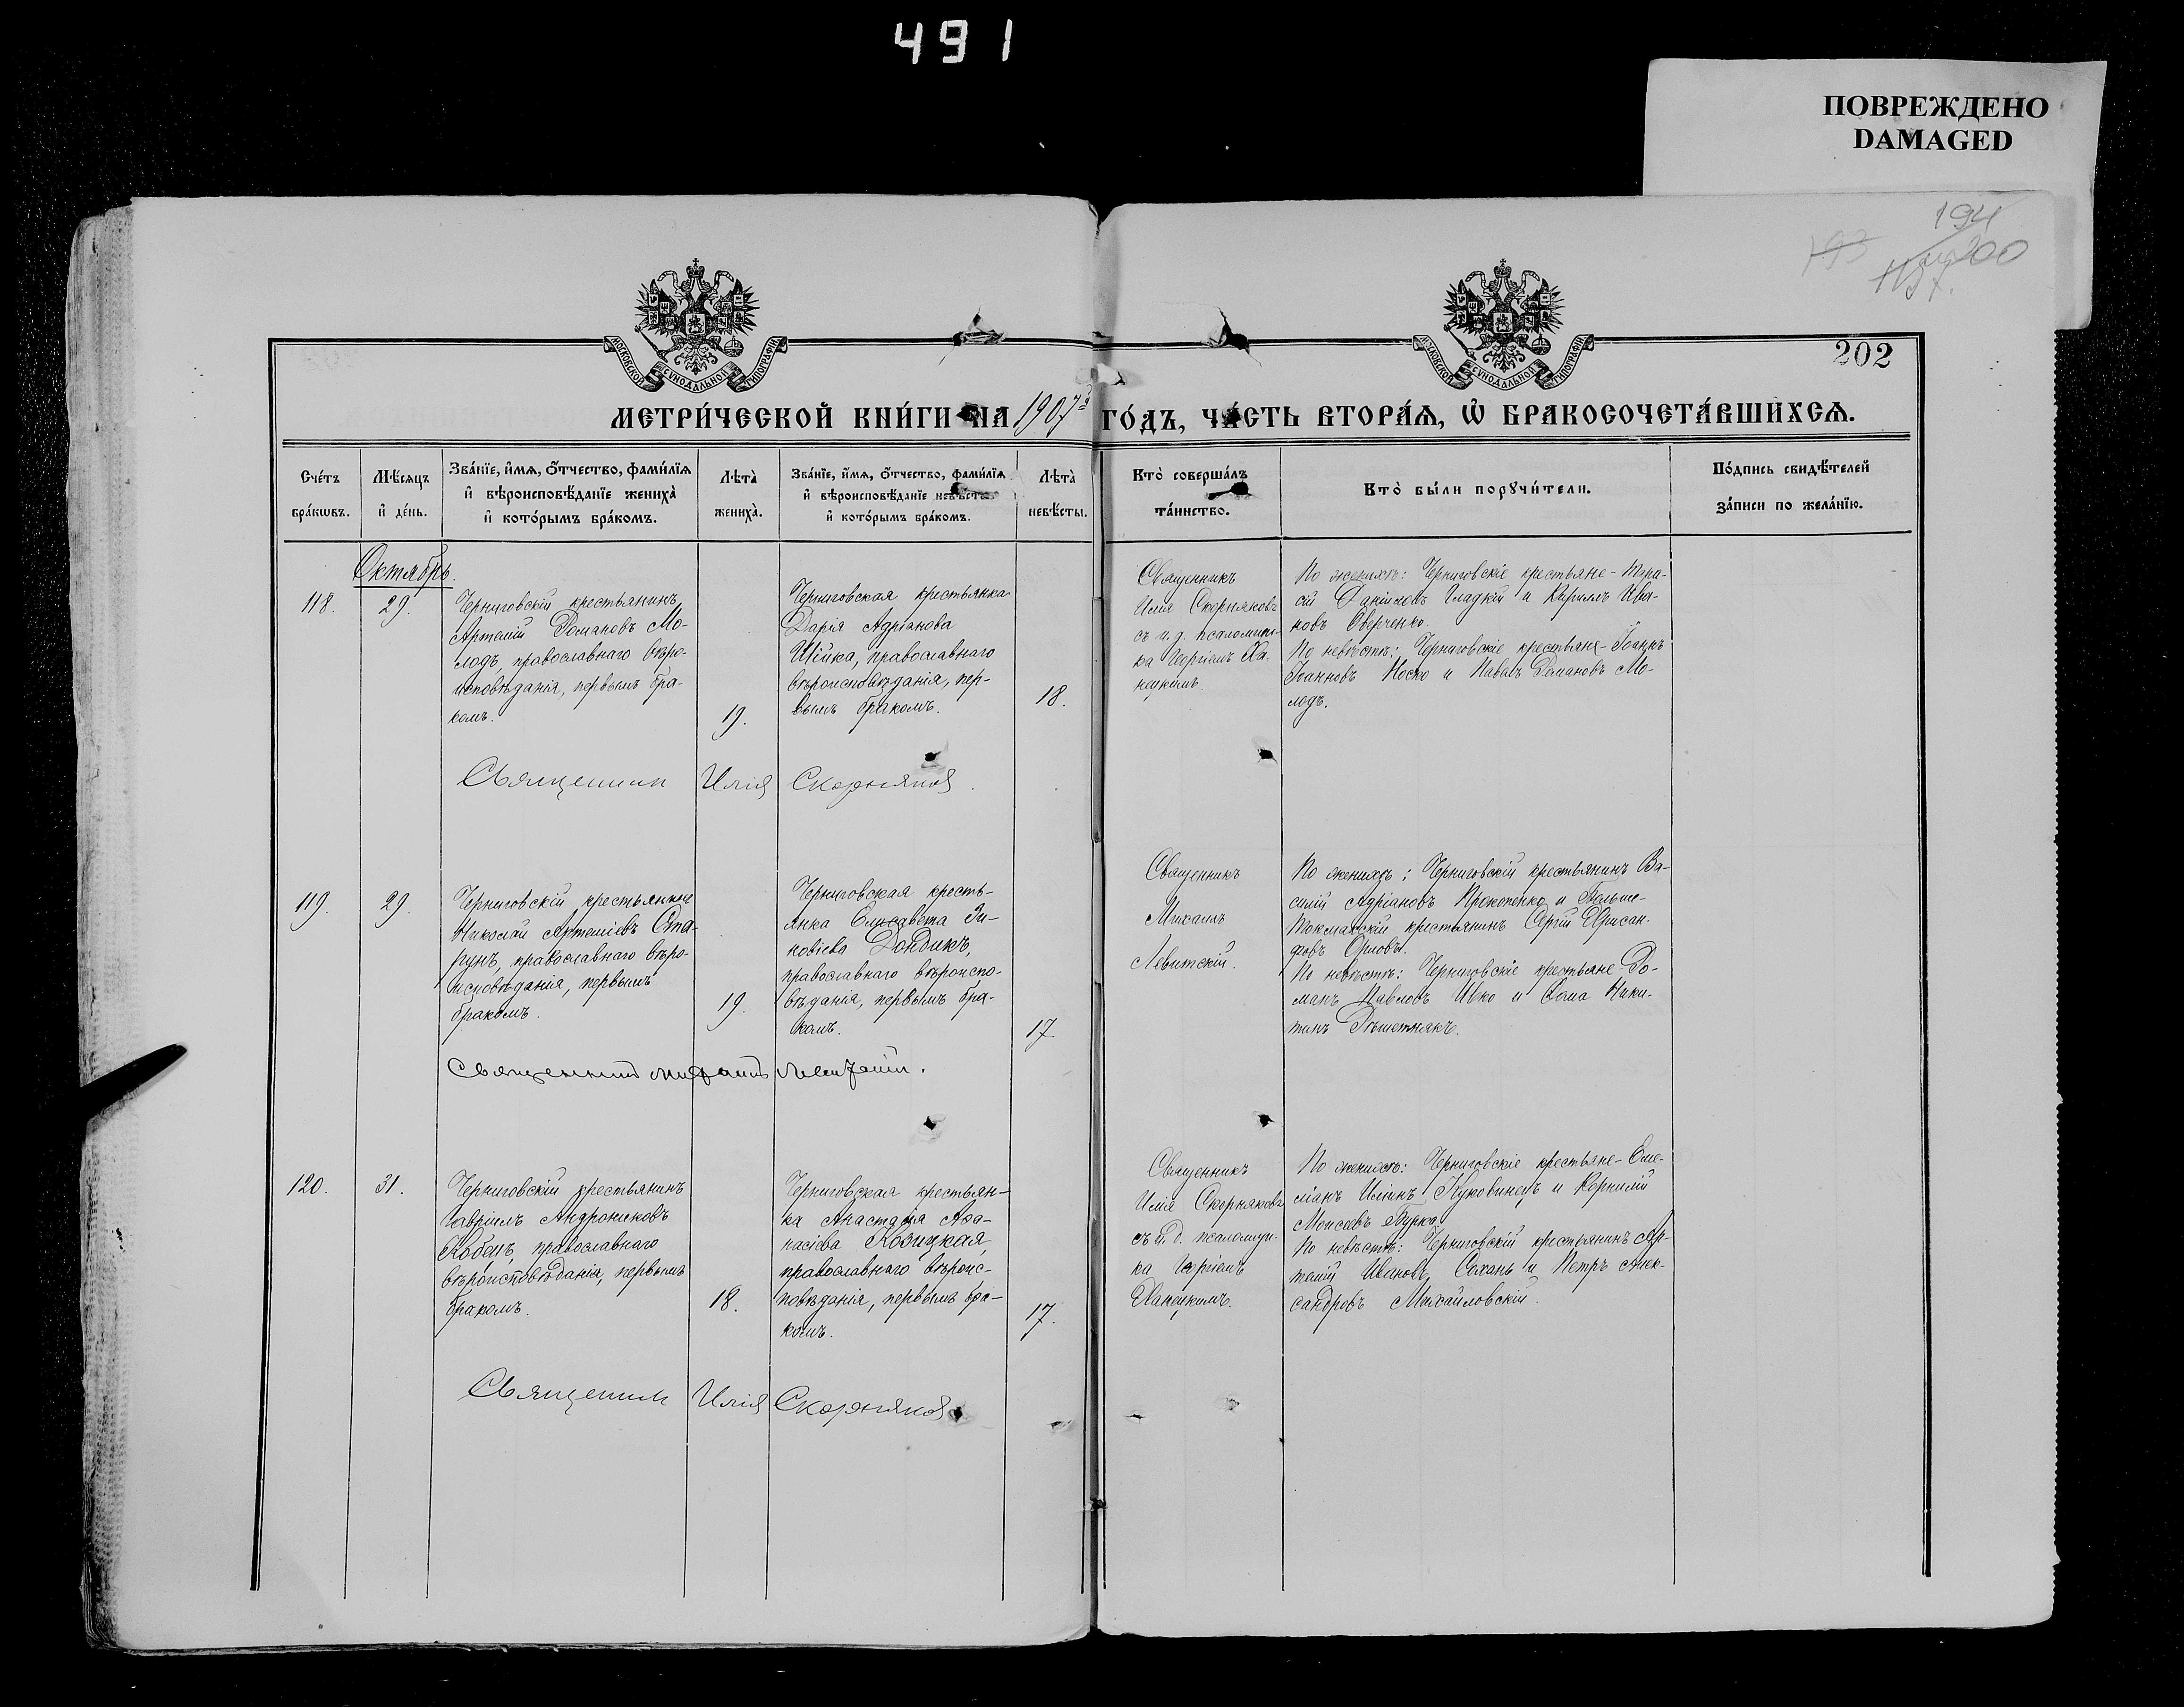 491
ПОВРЕЖДЕНО
DAMAGED
194
193
200
202
МОСКОВСКОЙ СѴНОДАЛЬНОЙ ТИПОГРАФІИ
МОСКОВСКОЙ СѴНОДАЛЬНОЙ ТИПОГРАФІИ
МЕТРИ́ЧЕСКОЙ КНИ́ГИ НА 1907й ГО́ДЪ, ЧА́СТЬ ВТОРА́Ѧ, Ѡ҆ БРАКОСОЧЕТА́ВШИХСѦ.
Сче́тъ
бра́кѡвъ.
Мѣ́сяцъ
и҆ де́нь.
Зва́нїе, и҆́мѧ, ѻ҆́тчество, фами́лїѧ
и҆ вѣроисповѣ́данїе жениха̀
и҆ кото́рымъ бра́комъ.
Лѣта̀
жениха̀.
Зва́нїе, и҆́мѧ, ѻ҆́тчество, фами́лїѧ
и҆ вѣроисповѣ́данїе невѣ́сты
и҆ кото́рымъ бра́комъ.
Лѣта̀
невѣ́сты.
Кто̀ соверша́лъ
та́инство.
Кто̀ бы́ли порꙋчи́тели.
По́дпись свидѣ́телей
за́писи по жела́нїю.
Октябрь.
118.
29.
Черниговскій крестьянинъ
Артемій Романовъ Мо-
лодъ, православнаго вѣро-
исповѣданія, первымъ бра-
комъ.
19.
Черниговская крестьянка
Дарія Адріанова
Шійка, православнаго
вѣроисповѣданія, пер-
вымъ бракомъ.
18.
Священникъ
Илія Скорняковъ
съ и. д. псаломщи-
ка Георгіемъ Ха-
нецкимъ.
По женихѣ: Черниговскіе крестьяне - Тара-
сій Даніиловъ Гладкій и Кириллъ Ива-
новъ Оверченко.
По невѣстѣ: Черниговскіе крестьяне - Іоаннъ
Іоанновъ Носко и Павелъ Романовъ Мо-
лодъ.
Священникъ Илія Скорняковъ.
119.
29.
Черниговскій крестьянинъ
Николай Артеміевъ Ста-
гунъ, православнаго вѣро-
исповѣданія, первымъ
бракомъ.
19.
Черниговская кресть-
янка Елисавета Зи-
новіева Дондикъ,
православнаго вѣроиспо-
вѣданія, первымъ бра-
комъ.
17.
Священникъ
Михаилъ
Левитскій.
По женихѣ: Черниговскій крестьянинъ Ва-
силій Адріановъ Прокопенко и Больше-
Токмакскій крестьянинъ Сергій Хрисан-
фовъ Орловъ.
По невѣстѣ: Черниговскіе крестьяне Ро-
манъ Павловъ Ивко и Ѳома Ники-
тинъ Рѣшетнякъ.
Священникъ Михаилъ Левитскій.
120.
31.
Черниговскій крестьянинъ
Гавріилъ Андрониковъ
Кобецъ, православнаго
вѣроисповѣданія, первымъ
бракомъ.
18.
Черниговская крестьян-
ка Анастасія Аѳа-
насіева Козицкая,
православнаго вѣроис-
повѣданія, первымъ бра-
комъ.
17.
Священникъ
Илія Скорняковъ
съ и. д. псаломщи-
ка Георгіемъ
Ханецкимъ.
По женихѣ: Черниговскіе крестьяне - Еме-
ліанъ Иліинъ Куковинецъ и Корнилій
Моисеевъ Бурко.
По невѣстѣ: Черниговскій крестьянинъ Ар-
темій Ивановъ Сохань и Петръ Алек-
сандровъ Михайловскій.
Священникъ Илія Скорняковъ